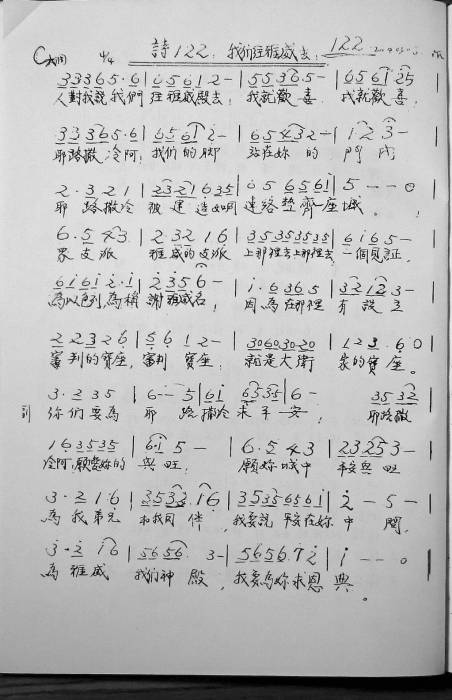 C大調 4/4 詩122:我們往雅威去: 122
3 3 3 6 5 · 6 | 6 5 6 1 2 - | 5 5 3 6 5 - | 6 5 6 1 2 5
人對我說我們 往雅威殿去, 我就歡喜 我就歡喜,
3 3 3 6 5 · 6 | 6 5 6 1 2 - | 6 5 4 3 2 - | 1 · 2 3 - |
耶路撒冷阿, 我們的脚 站在妳的 門內
2 · 3 2 1 | 2 3 2 1 6 3 5 | 6 5 6 5 6 1 | 5 - - 0 |
耶路撒冷 被建造如同 連絡整齊一座城。
6 · 5 4 3 | 2 · 3 2 1 6 | 3 5 3 5 3 5 3 5 | 6 1 6 5 - |
眾支派 雅威的支派 上那裡去上那裡去, 一個見証,
6 1 6 1 2 · 1 | 2 3 5 6 - | 1 · 6 3 6 5 | 3 2 1 2 3 - |
為以色列, 為稱謝雅威名, 因為在那裡 有設立
2 2 3 2 6 | 5 6 1 2 - | 3 0 6 0 3 0 2 0 | 1 2 3 · 6 0 |
審判的寶座, 審判寶座, 就是大衛 家的寶座。
3 · 2 3 5 | 6 - - 5 | 6 1 6 5 3 5 | 6 - 3 5 3 2 |
你們要為 耶路撒冷求平安, 耶路撒
1 6 3 5 3 5 | 6 1 5 - | 6 · 5 4 3 | 2 3 2 5 3 - |
冷阿, 願愛妳的 興旺, 願妳城中 平安興旺
3 · 2 1 6 | 3 5 3 2 1 6 | 3 5 3 5 6 5 6 1 | 2 - 5 - |
為我弟兄 和我同伴, 我要說平安在妳中間,
3 · 2 1 6 | 5 6 5 6 · 3 - | 5 6 5 6 · 7 2 | 1 - - 0 |
為雅威 我们神殿, 我要為妳求恩典。